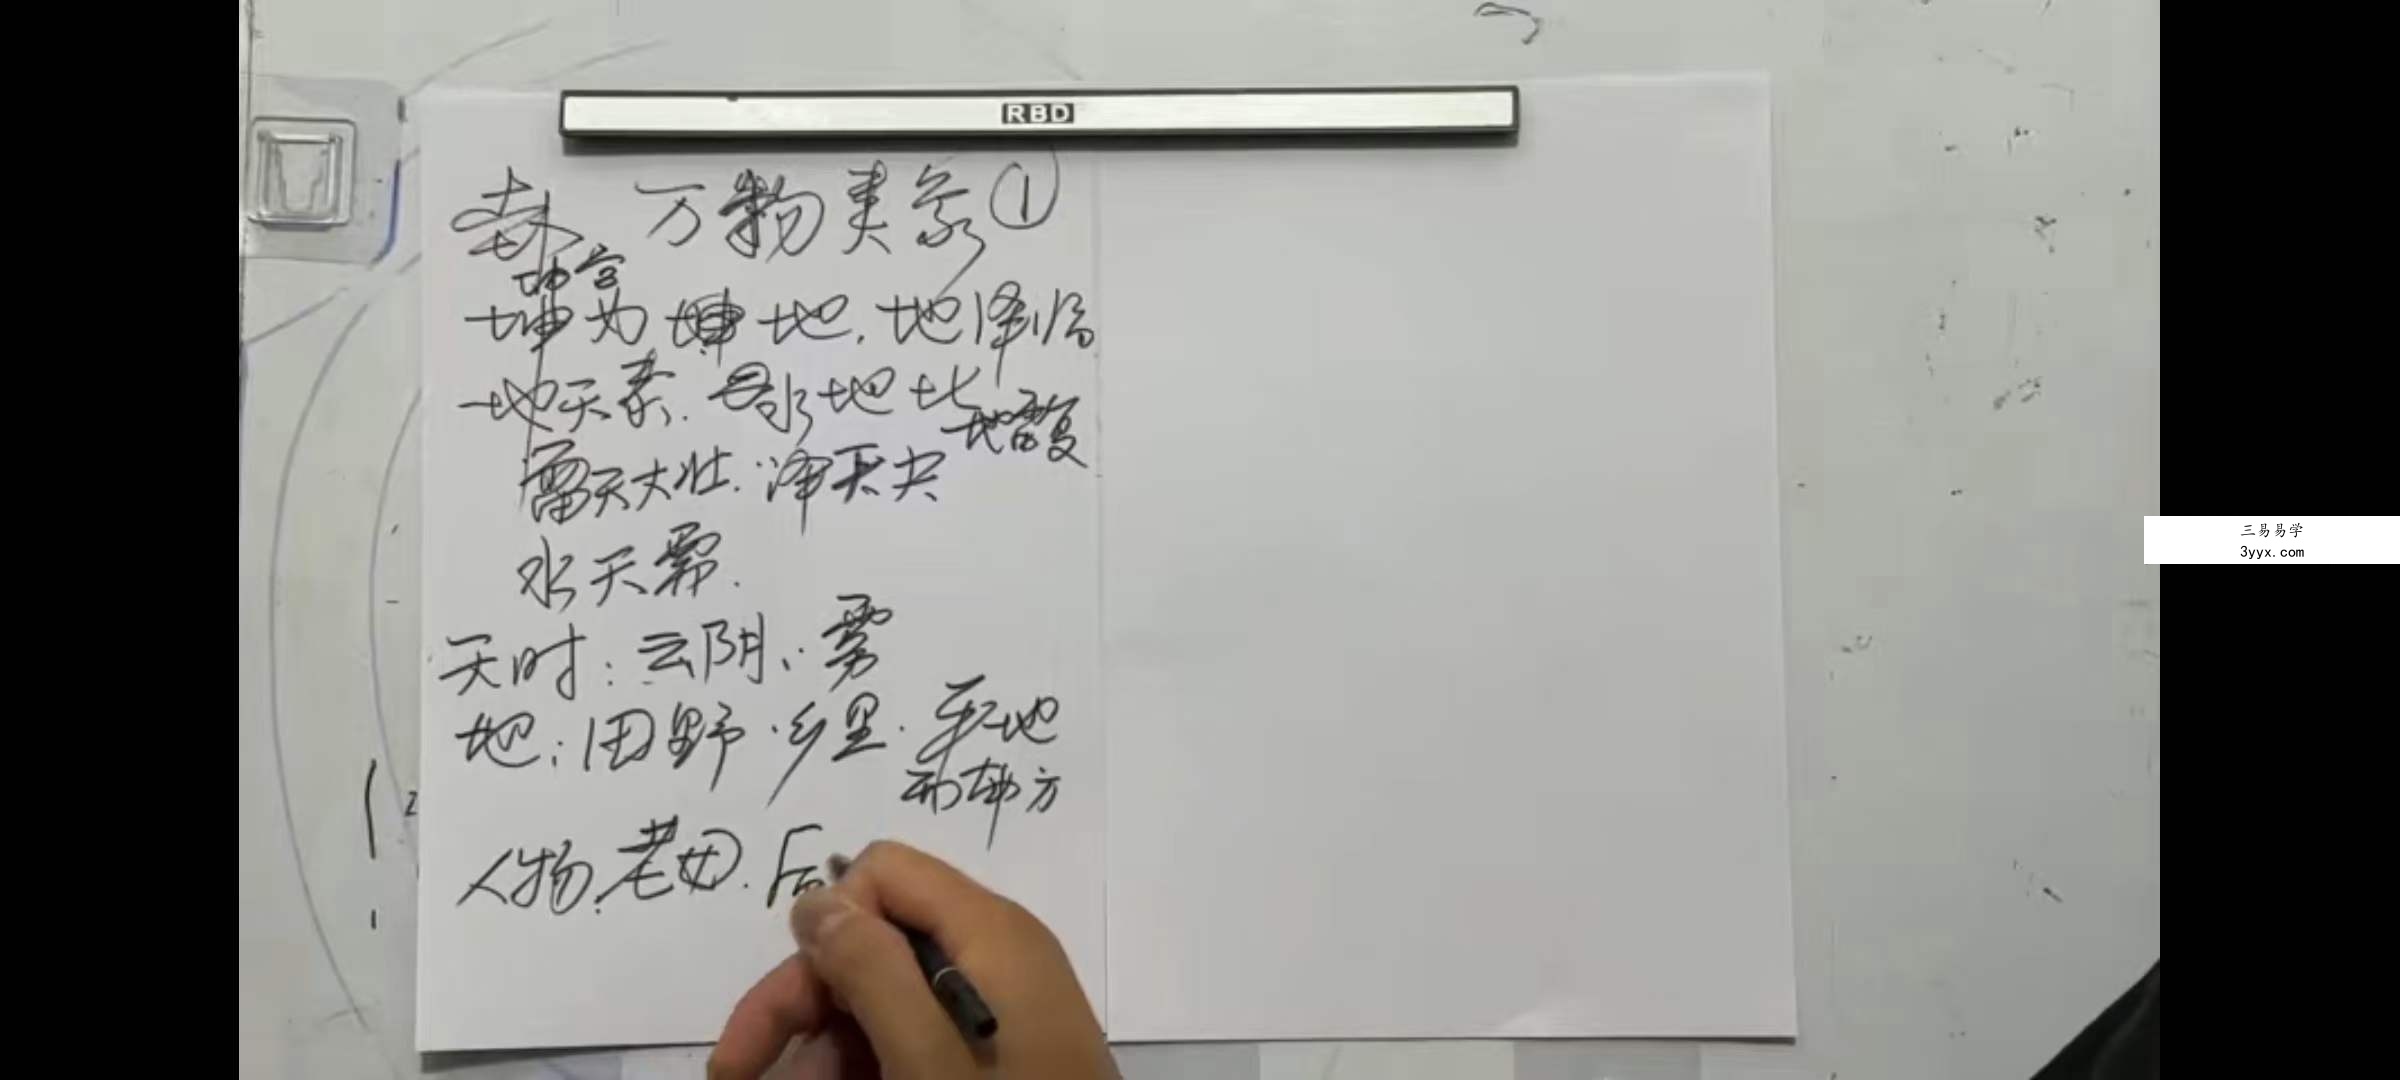 RBD
万物类象①
坤宫
坤为坤地.地泽临
地天泰.水地比
地雷复
雷天大壮.泽天夬
水天需.
天时:云阴、雾
地:田野.乡里.平地
西南方
人物.老母.后
三易易学
3yyx.com